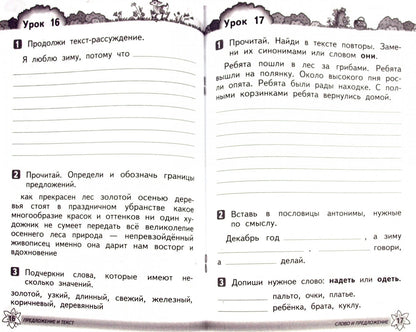 Урок 16
1 Продолжи текст-рассуждение.
Я люблю зиму, потому что
2 Прочитай. Определи и обозначь границы
предложений.
как прекрасен лес золотой осенью дерева
вья стоят в праздничном убранстве какое
многообразие красок и оттенков ни один ху-
дожник не сумеет передать всё великолепие
осеннего леса природа — непревзойдённый
живописец именно она дарит нам восторг и
вдохновение
3 Подчеркни слова, которые имеют не-
сколько значений.
золотой, узкий, длинный, свежий, железный,
коричневый, деревянный
16
ПРЕДЛОЖЕНИЕ И ТЕКСТ
Урок 17
1 Прочитай. Найди в тексте повторы. Заме-
ни их синонимами или словом они.
Ребята пошли в лес за грибами. Ребята
вышли на полянку. Около высокого пня рос-
ли опята. Ребята были рады находке. С пол-
ными корзинками ребята вернулись домой.
2 Вставь в пословицы антонимы, нужные
по смыслу.
Декабрь год, а зиму
говори,
а делай.
3 Допиши нужное слово: надеть или одеть.
пальто, очки, платье.
ребёнка, брата, куклу.
СЛОВО И ПРЕДЛОЖЕНИЕ
17